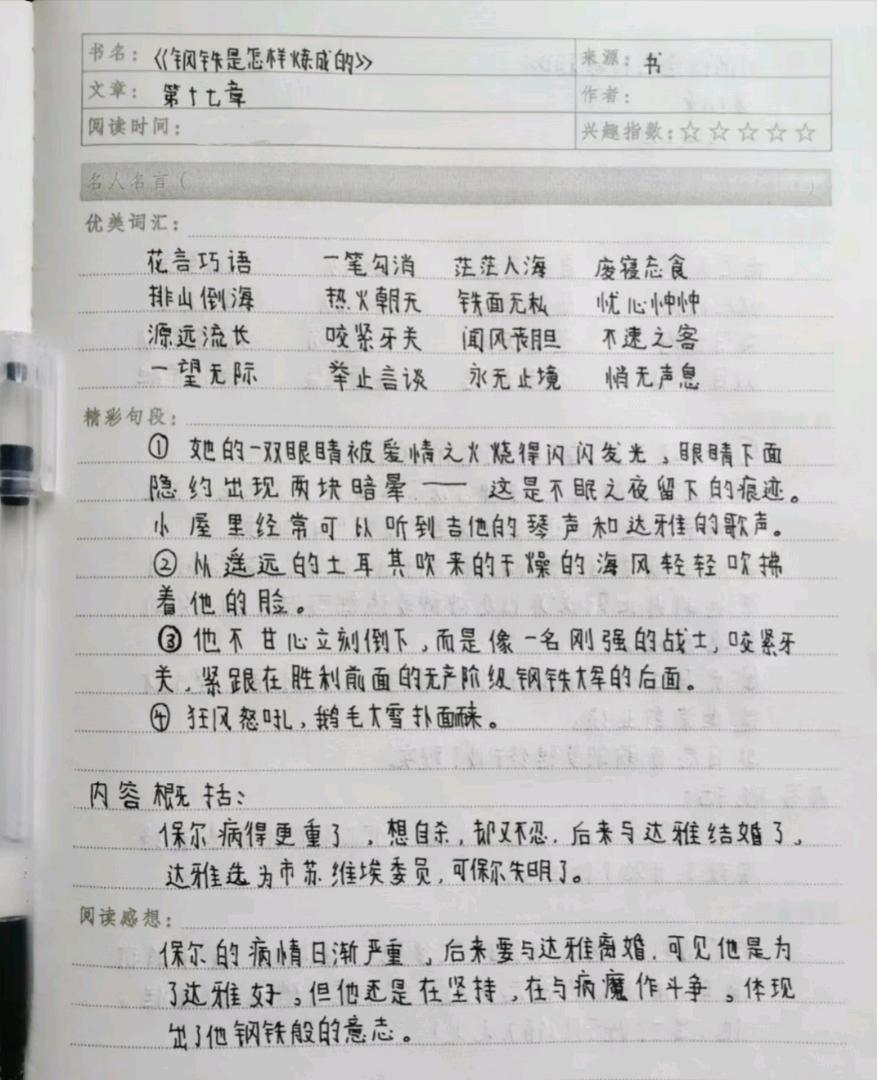 书名：《钢铁是怎样炼成的》 来源：书
文章：第十七章 作者：
阅读时间： 兴趣指数：☆☆☆☆☆
名人名言（ ）
优美词汇：
花言巧语 一笔勾消 茫茫人海 废寝忘食
排山倒海 热火朝天 铁面无私 忧心忡忡
源远流长 咬紧牙关 闻风丧胆 不速之客
一望无际 举止言谈 永无止境 悄无声息
精彩句段：
① 她的一双眼睛被爱情之火烧得闪闪发光，眼睛下面
隐约出现两块暗晕——这是不眠之夜留下的痕迹。
小屋里经常可以听到吉他的琴声和达雅的歌声。
② 从遥远的土耳其吹来的干燥的海风轻轻吹拂
着他的脸。
③ 他不甘心立刻倒下，而是像一名刚强的战士，咬紧牙
关，紧跟在胜利前面的无产阶级钢铁大军的后面。
④ 狂风怒吼，鹅毛大雪扑面而来。
内容概括：
保尔病得更重了，想自杀，却又不忍，后来与达雅结婚了，
达雅选为市苏维埃委员，可保尔失明了。
阅读感想：
保尔的病情日渐严重，后来要与达雅离婚，可见他是为
了达雅好，但他还是在坚持，在与病魔作斗争。体现
出了他钢铁般的意志。